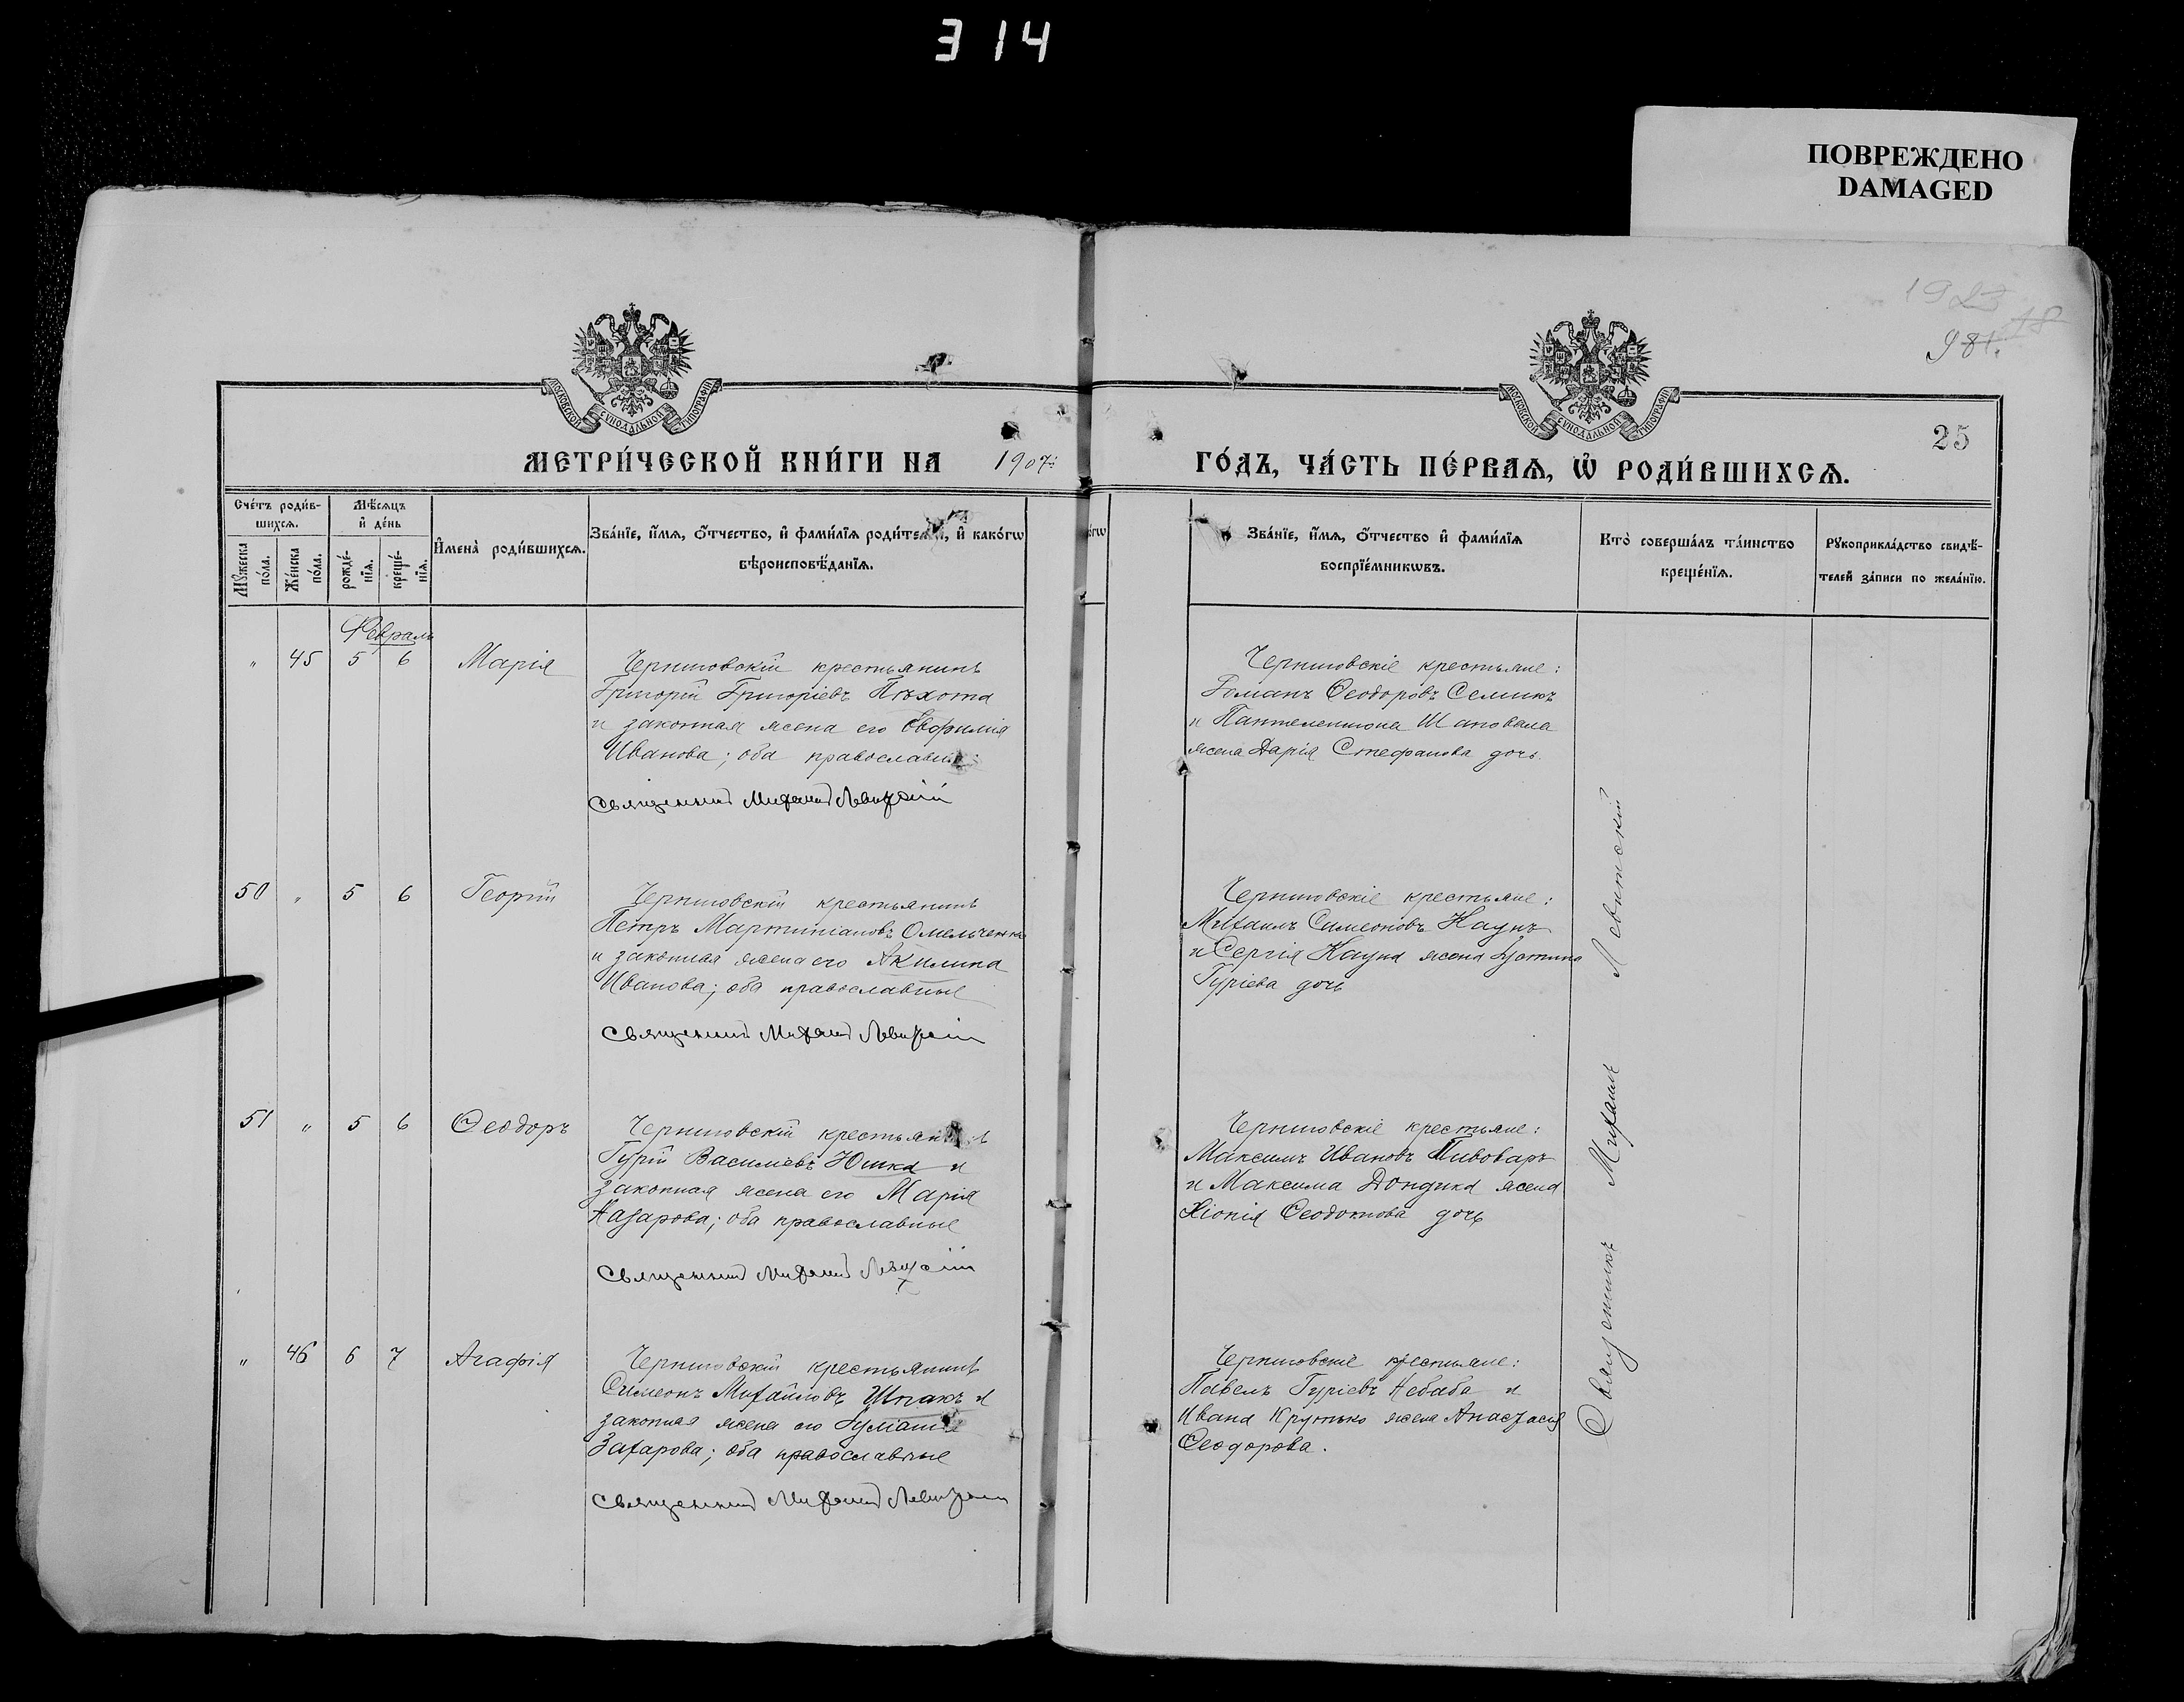 314
ПОВРЕЖДЕНО
DAMAGED
МОСКОВСКОЙ СУНОДАЛЬНОЙ ТИПОГРАФІИ
МОСКОВСКОЙ СУНОДАЛЬНОЙ ТИПОГРАФІИ
98
25
МЕТРИ́ЧЕСКОЙ КНИ́ГИ НА 1907 ГО́ДЪ, ЧА́СТЬ ПЕ́РВАѦ, Ѡ РОДИ́ВШИХСѦ.
Сче́тъ роди́в-
шихсѧ.
Мѣ́сѧцъ
и҆ де́нь
Мꙋ́жеска по́ла.
Же́нска по́ла.
рожде́-нїѧ.
креще́-нїѧ.
И҆мена̀ роди́вшихсѧ.
Зва́нїе, и҆́мѧ, ѻ҆́тчество, и҆ фами́лїѧ роди́телей, и҆ како́гѡ
вѣроисповѣ́данїѧ.
Зва́нїе, и҆́мѧ, ѻ҆́тчество и҆ фами́лїѧ
воспрїе́мникѡвъ.
Кто̀ соверша́лъ та́инство
креще́нїѧ.
Рꙋкоприкла́дство свидѣ́-
телей за́писи по жела́нїю.
Февраль
" 45 5 6 Марія
Черниговскій крестьянинъ
Григорій Григоріевъ Пѣхота
и законная жена его Евфимія
Иванова; оба православные
Священникъ Михаилъ Левитскій
Черниговскіе крестьяне:
Романъ Ѳеодоровъ Семикъ
и Пантелеимона Шаповала
жена Дарія Стефанова дочь.
50 " 5 6 Георгій
Черниговскій крестьянинъ
Петръ Мартиніановъ Омельченко
и законная жена его Акилина
Иванова; оба православные
Священникъ Михаилъ Левитскій
Черниговскіе крестьяне:
Михаилъ Симеоновъ Каунъ
и Сергія Кауна жена
Гуріева дочь
51 " 5 6 Ѳеодоръ
Черниговскій крестьянинъ
Гурій Василіевъ Юшка и
законная жена его Марія
Назарова; оба православные
Священникъ Михаилъ Левитскій
Черниговскіе крестьяне:
Максимъ Ивановъ Пивоваръ
и Максима Дондика жена
Хіонія Ѳеодотова дочь
" 46 6 7 Агафія
Черниговскій крестьянинъ
Симеонъ Михайловъ Шпакъ и
законная жена его
Захарова; оба православные
Священникъ Михаилъ Левитскій
Черниговскіе крестьяне:
Павелъ Гуріевъ Небаба и
Ивана Крутько жена Анастасія
Ѳеодорова.
Священникъ Михаилъ Левитскій